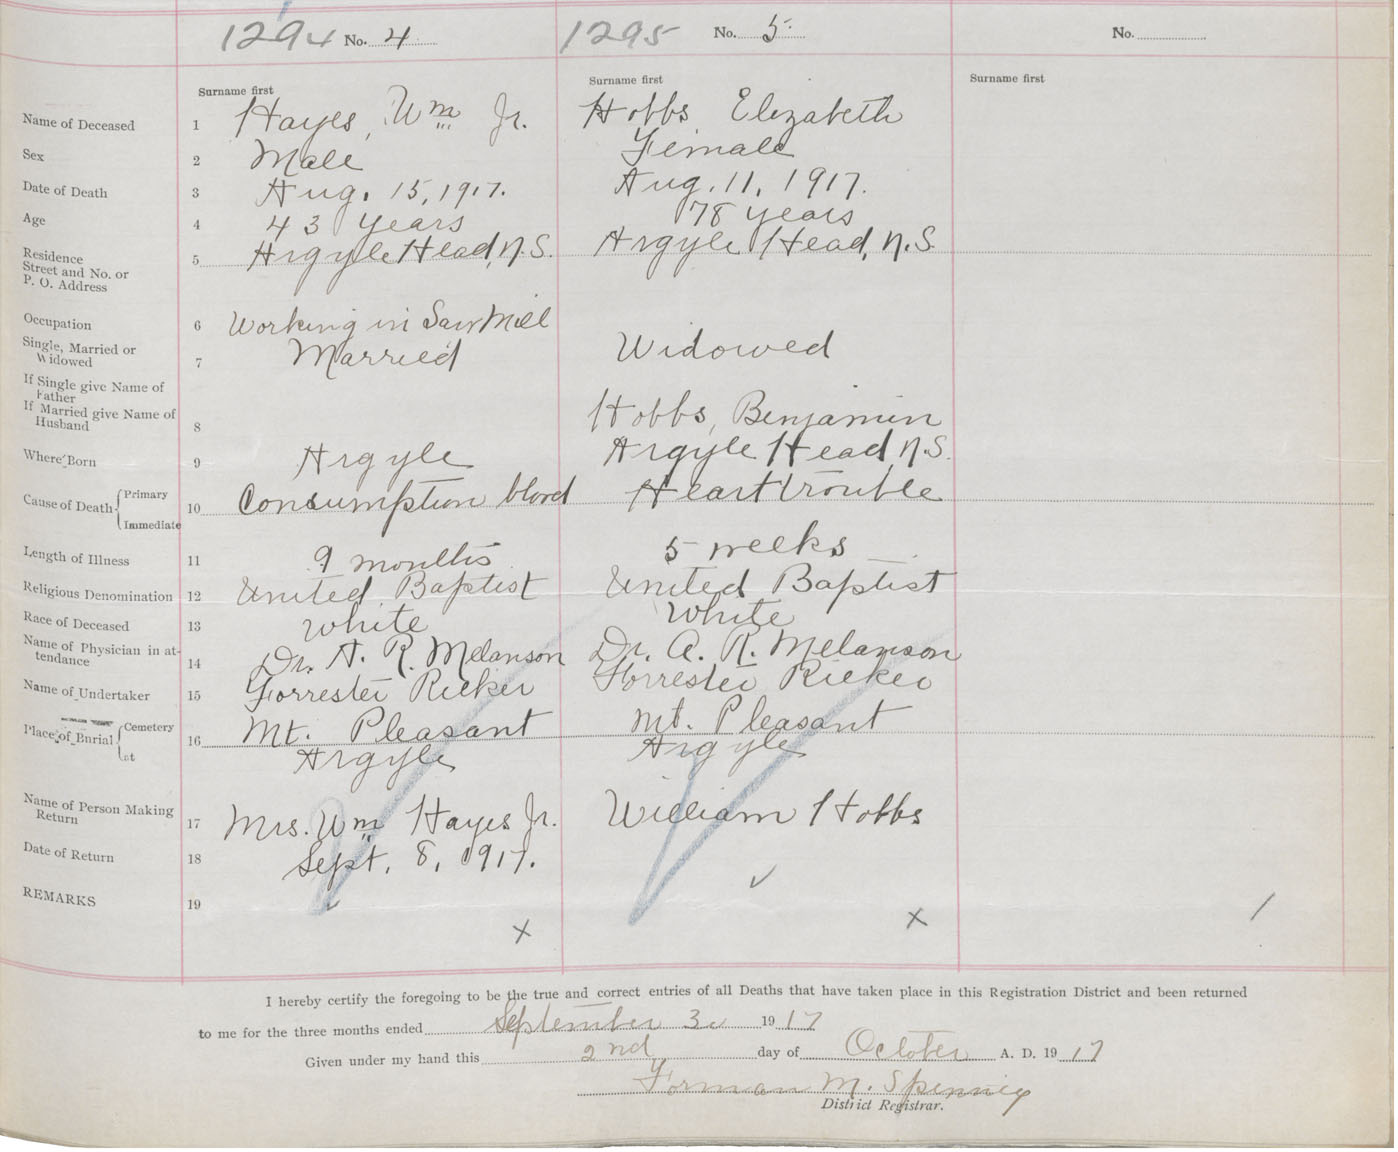 1294 No. 4
1295 No. 5
No.
Surname first
Surname first
Surname first
Name of Deceased 1 Hayes, Wm Jr. Hobbs Elizabeth
Sex 2 Male Female
Date of Death 3 Aug. 15, 1917. Aug. 11, 1917.
Age 4 43 years 78 years
Residence
Street and No. or
P. O. Address
5 Argyle Head, N.S. Argyle Head, N.S.
Occupation 6 Working in Saw Mill
Single, Married or
Widowed
7 Married Widowed
If Single give Name of
Father
If Married give Name of
Husband
8 Hobbs, Benjamin
Where Born 9 Argyle Argyle Head N.S.
Cause of Death Primary
Immediate
10 Consumption blood Heart trouble
Length of Illness 11 9 months 5 weeks
Religious Denomination 12 United Baptist United Baptist
Race of Deceased 13 White White
Name of Physician in at-
tendance
14 Dr. A. R. Melanson Dr. A. R. Melanson
Name of Undertaker 15 Forrester Ricker Forrester Ricker
Place of Burial Cemetery
at
16 Mt. Pleasant Mt. Pleasant
Argyle Argyle
Name of Person Making
Return
17 Mrs. Wm Hayes Jr. William Hobbs
Date of Return 18 Sept. 8, 1917.
REMARKS 19
x x
I hereby certify the foregoing to be the true and correct entries of all Deaths that have taken place in this Registration District and been returned
to me for the three months ended September 30 1917
Given under my hand this 2nd day of October A. D. 1917
Forman M. Spinney
District Registrar.